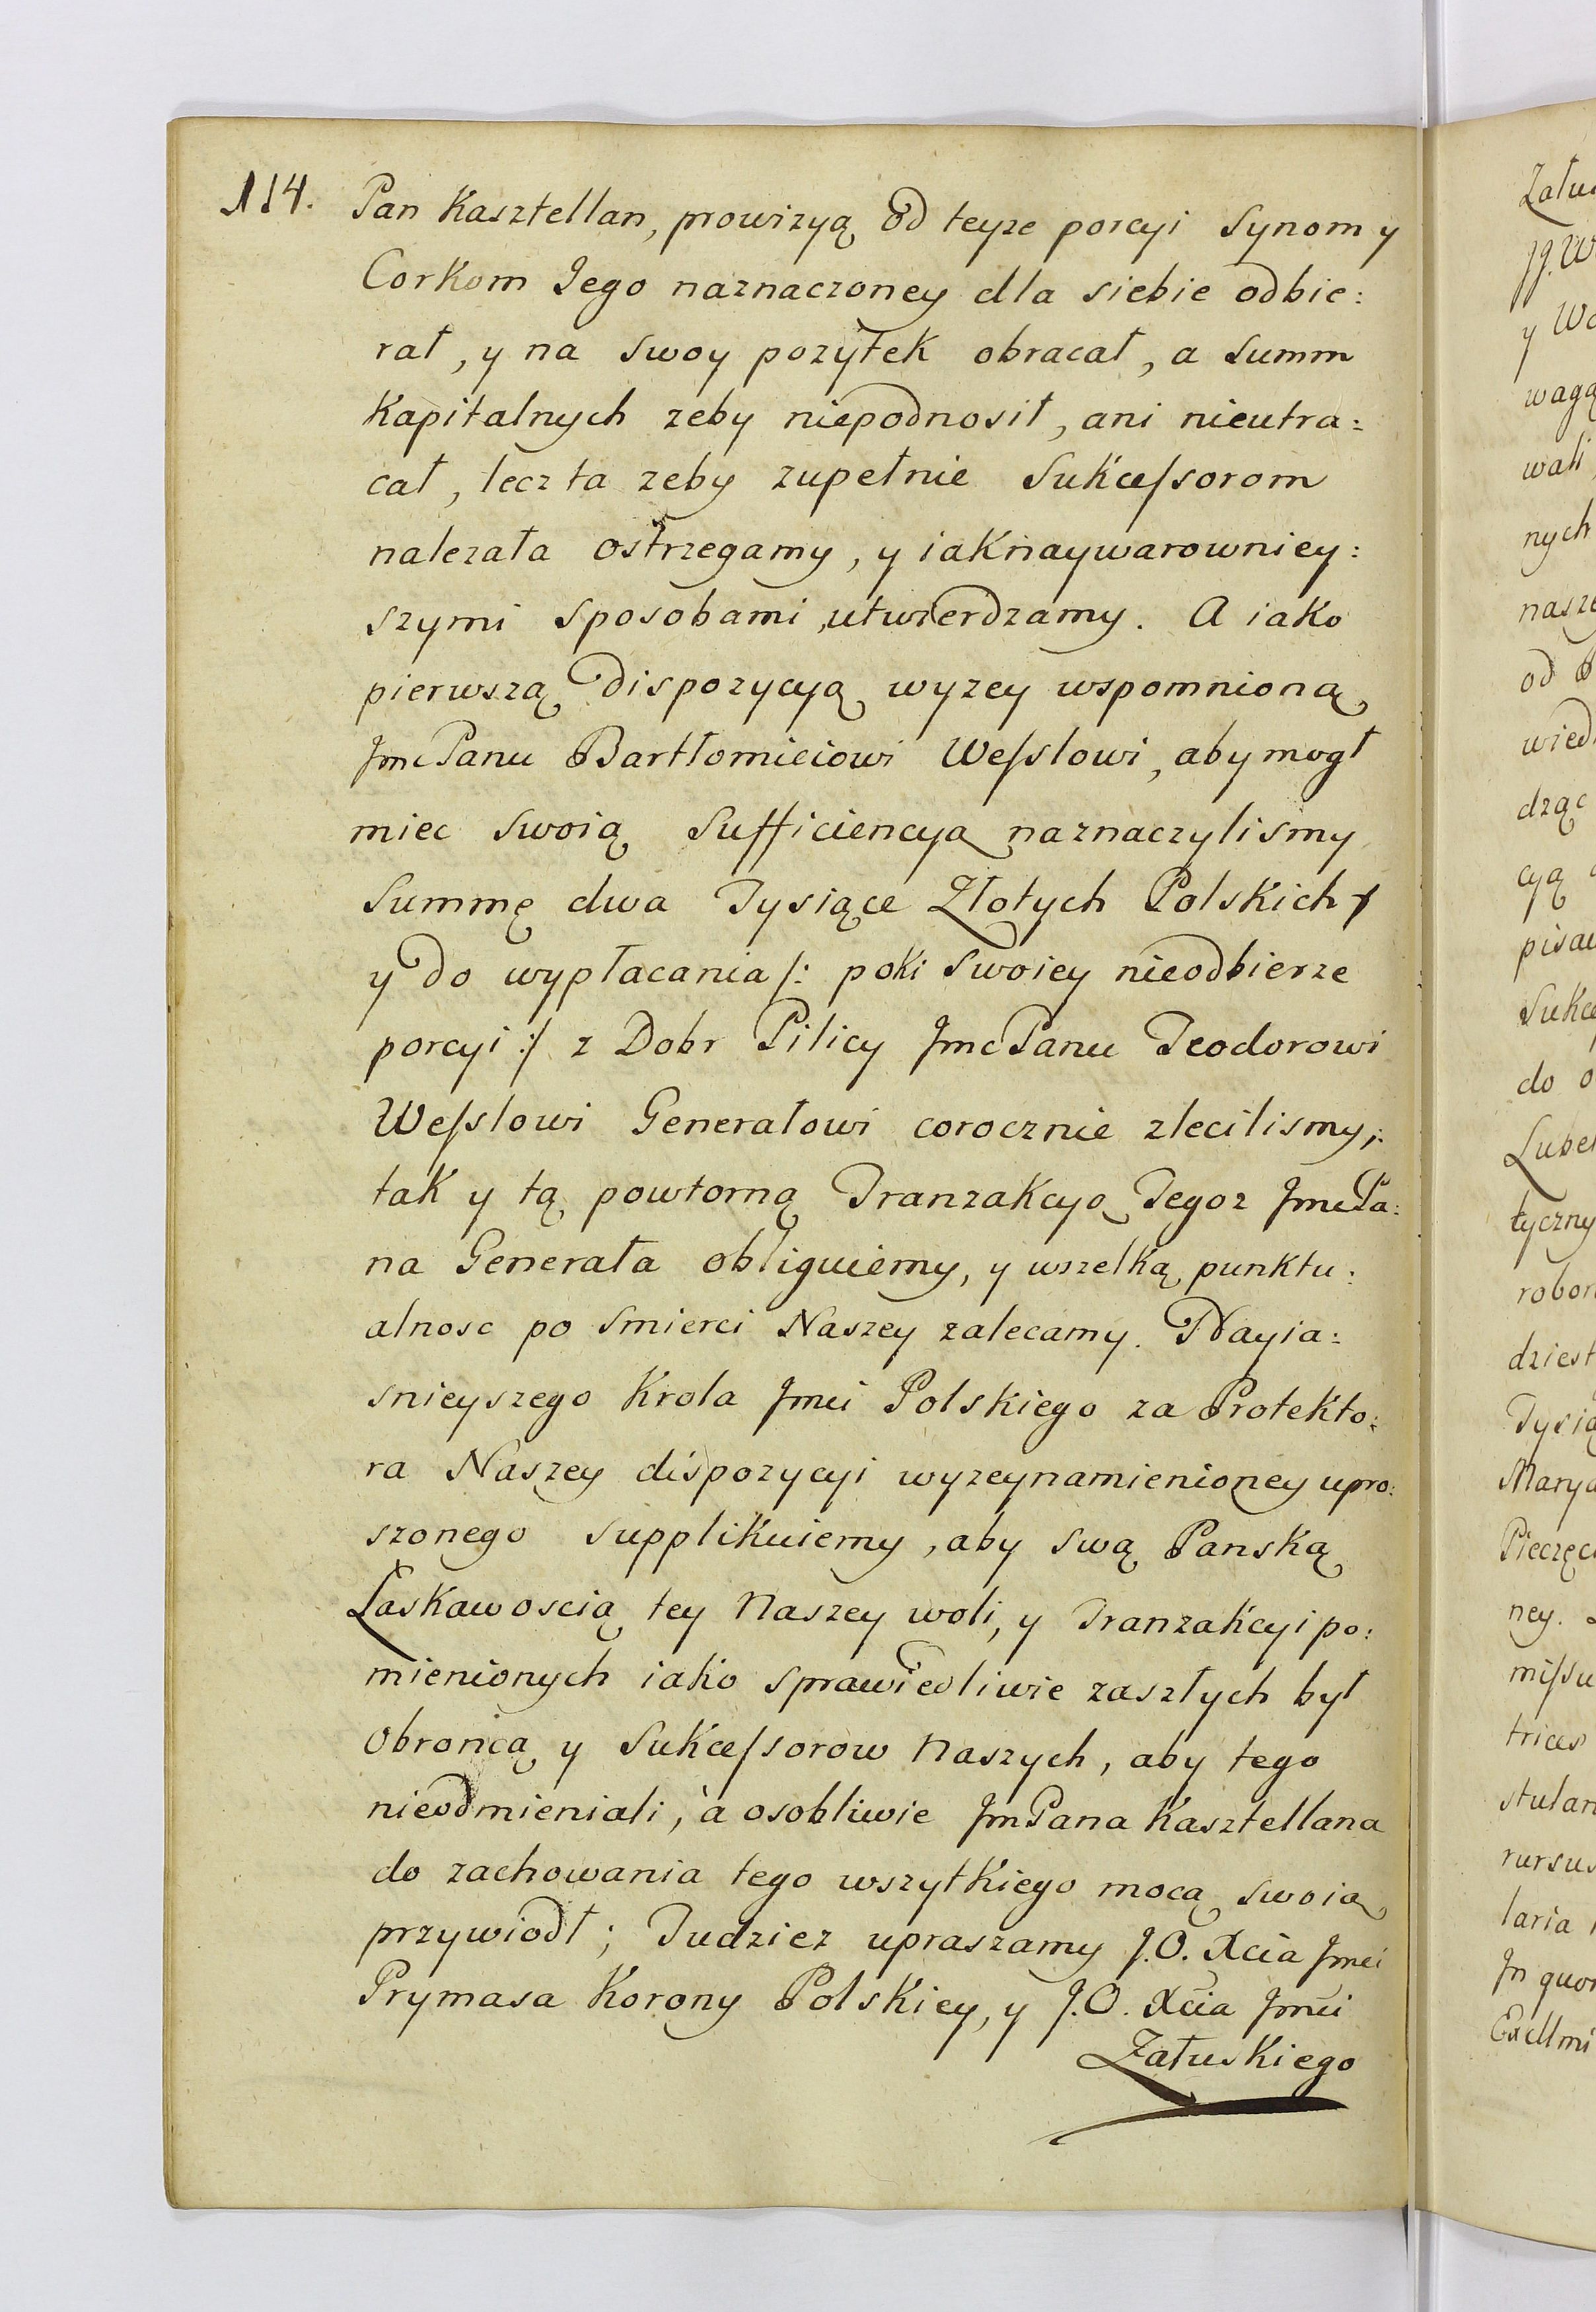 114. Pan Kasztellan, prowizyą od teyze porcyi Synom y
Corkom Jego naznaczoney dla siebie odbie:
rał, y na swoy pozytek obracał, a Summ
Kapitalnych zeby niepodnosił, ani nieutra:
cał, lecz ta zeby zupełnie Sukcessorom
nalezała ostrzegamy, y iaknaywarowniey:
szymi sposobami utwierdzamy. A iako
pierwszą Dispozycyą wyzey wspomnioną
Jmc Panu Bartłomieiowi Wesslowi, aby mogł
miec swoią Sufficiencyą naznaczylismy
Summę dwa Tysiące Złotych Polskich
y do wypłacania /: poki swoiey nieodbierze
porcyi :/ z Dobr Pilicy Jmc Panu Teodorowi
Wesslowi Generałowi corocznie zlecilismy;
tak y tą powtorną Tranzakcyą Tegoz Jmc Pa:
na Generała obliguiemy, y wszelką punktu:
alnosc po smierci Naszey zalecamy. Nayia:
snieyszego Krola Jmci Polskiego za Protekto:
ra Naszey dispozycyi wyzeynamienioney upro:
szonego supplikuiemy, aby swą Panską
Łaskawoscią tey Naszey woli, y Tranzakcyi po:
mienionych iako sprawiedliwie zaszłych był
Obroncą y Sukcessorow Naszych, aby tego
nieodmieniali, a osobliwie Jm Pana Kasztellana
do zachowania tego wszytkiego mocą swoią
przywiodł; Tudziez upraszamy J.O. Xcia Jmci
Prymasa Korony Polskiey, y J.O. Xcia Jmci
Załuskiego
Zału
y
wagą
wali
nych
nasze
od
wied
dząc
cyą
pisa
Sukce
do o
Lube
tyczny
robor
dziest
Tysią
Marya
Pieczęc
ney.
missu
trices
stulan
rursus
laria
Jn quor
Excllmi